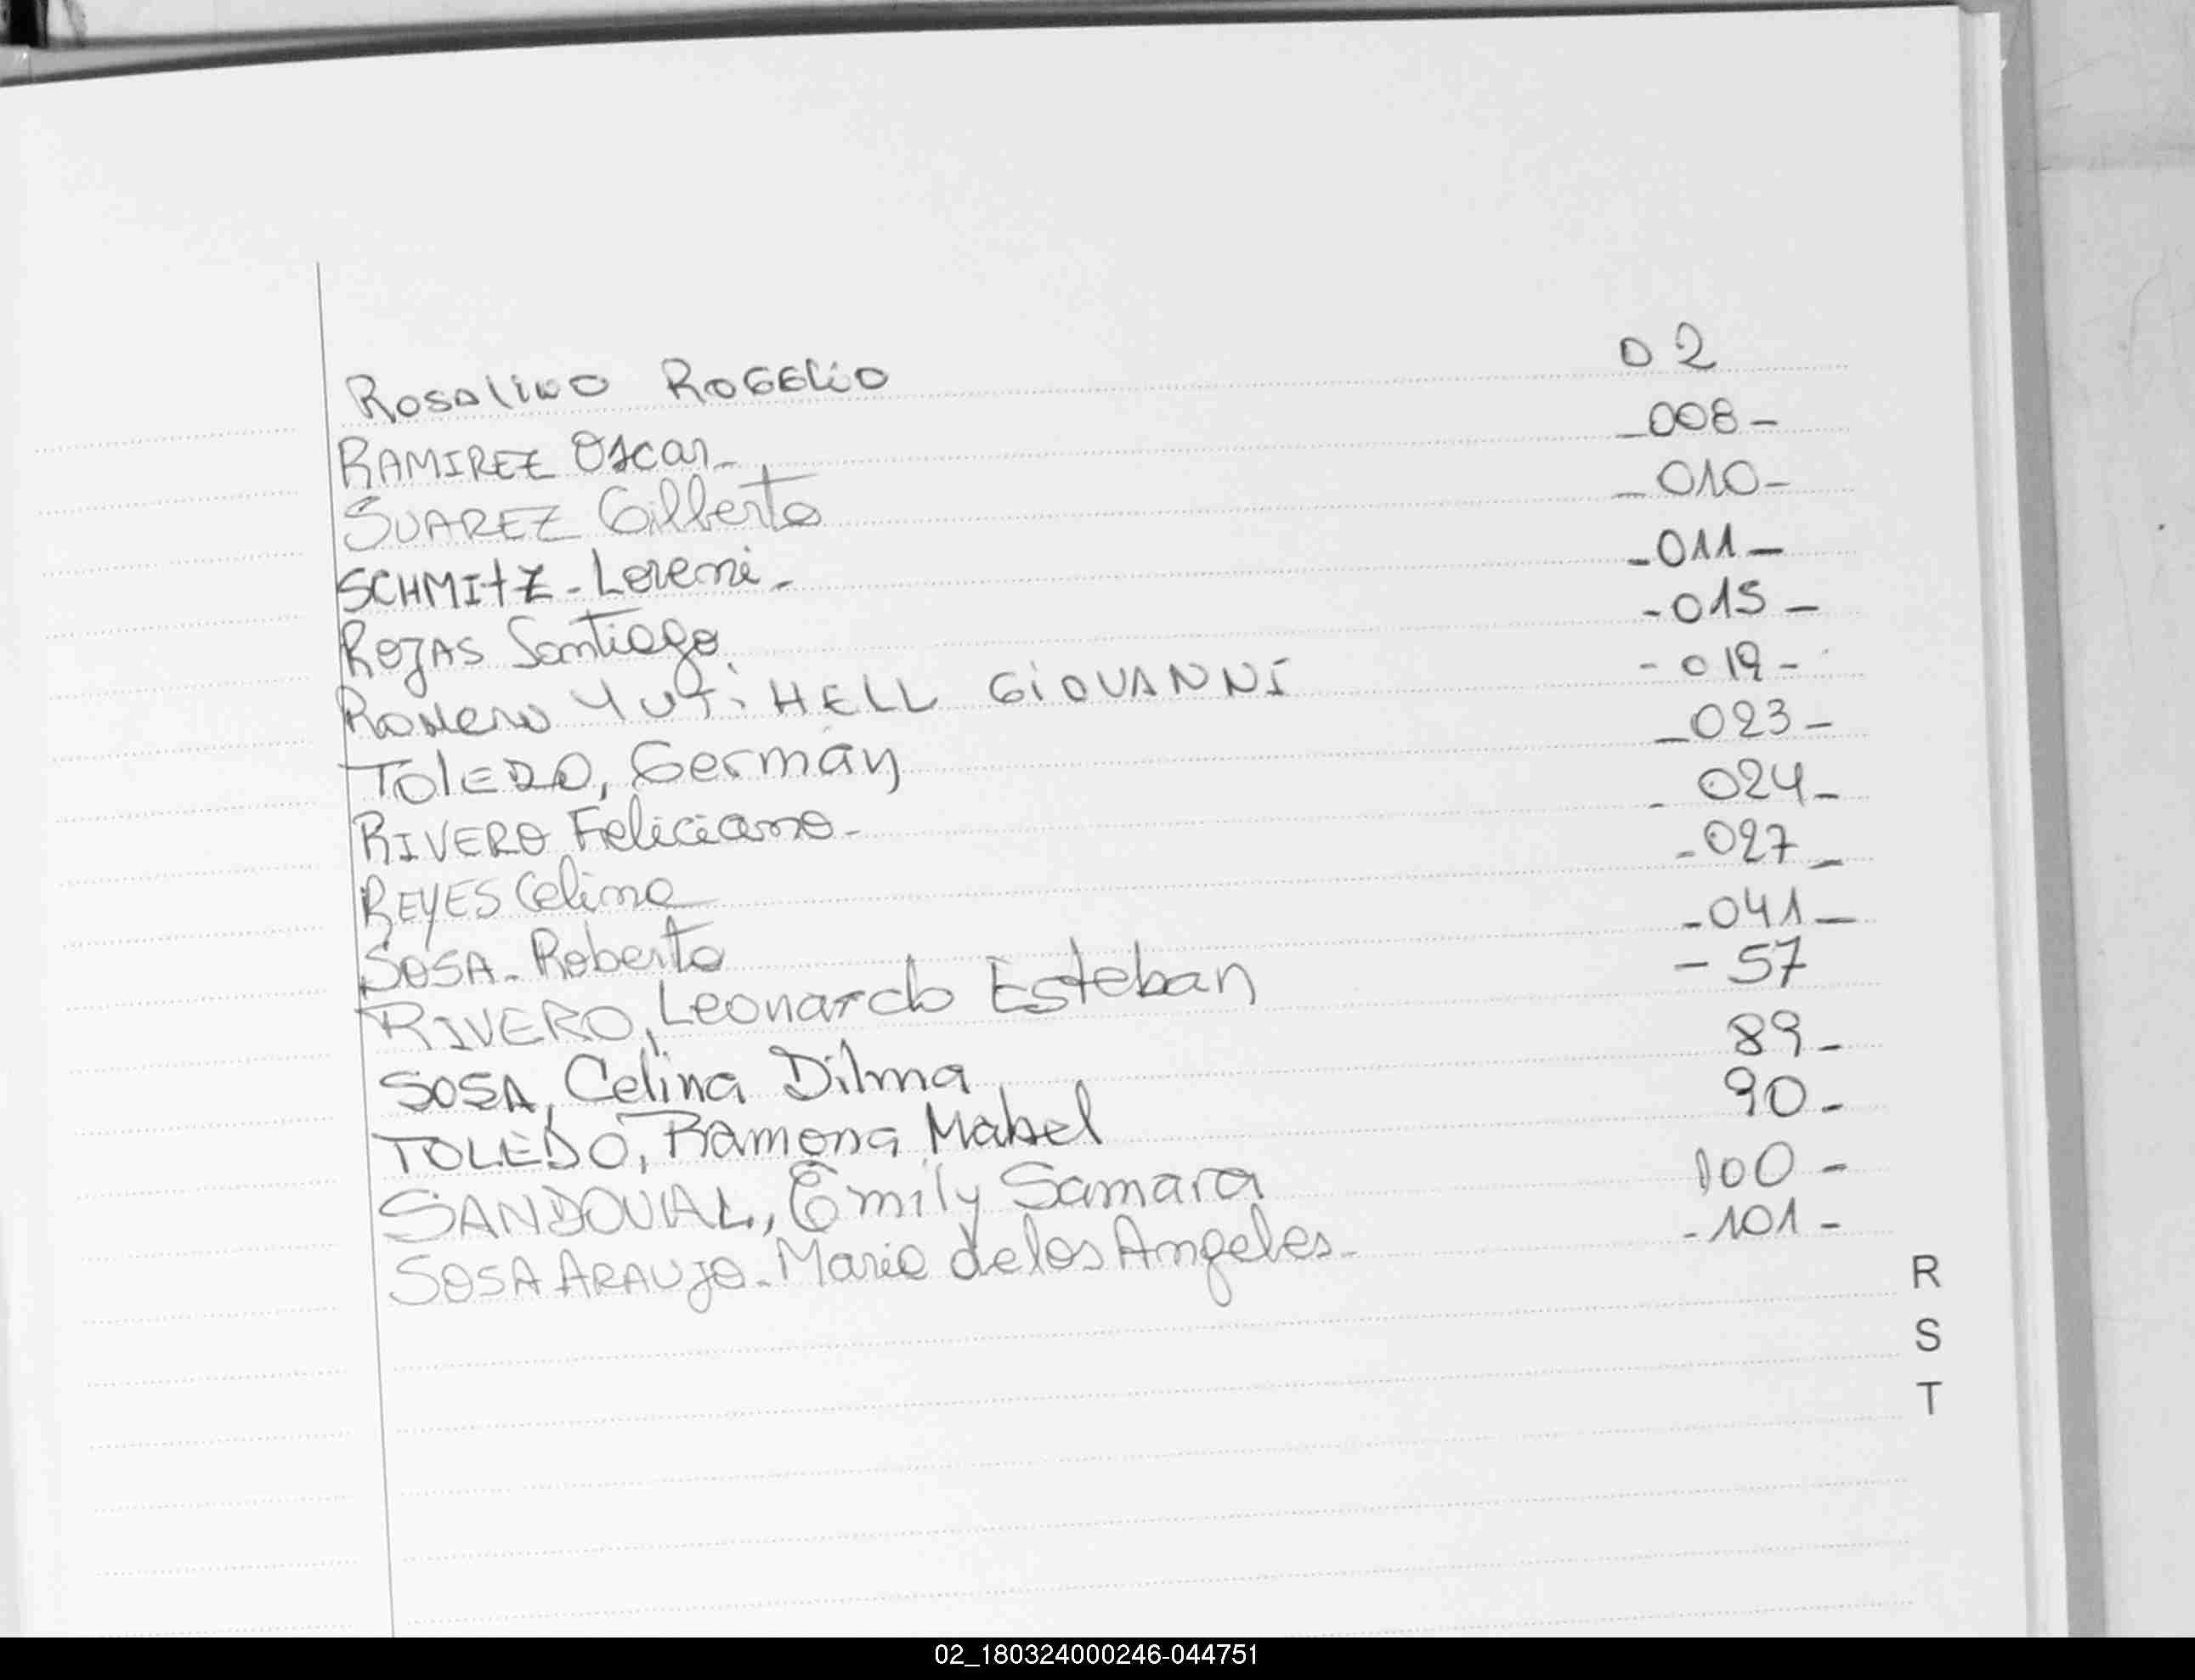 Rosalino Rogelio 02
RAMIREZ Oscar- -008-
SUAREZ Gilberto -010-
SCHMITZ - Loreni - -011-
ROJAS Santiago -015-
Romero HELL GIOVANNI -019-
TOLEDO, Germán -023-
RIVERO Feliciano- - 024-
REYES Celina -027-
SOSA - Roberto -041-
RIVERO, Leonardo Esteban - 57
SOSA, Celina Dilma 89-
TOLEDO, Ramona Mabel 90-
SANDOVAL, Emily Samara 100-
SOSA ARAUJO - Maria de los Angeles- -101-
R
S
T
02_180324000246-044751